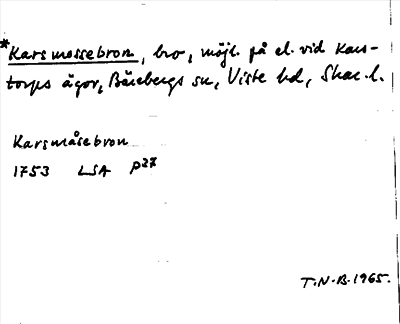 *Karsmossebron, bro, möjl. på el. vid Kars-
torps ägor, Bärebergs sn, Viste hd, Skar. l.
Karsmåsebron
1753 LSA P27
T.N.B. 1965.